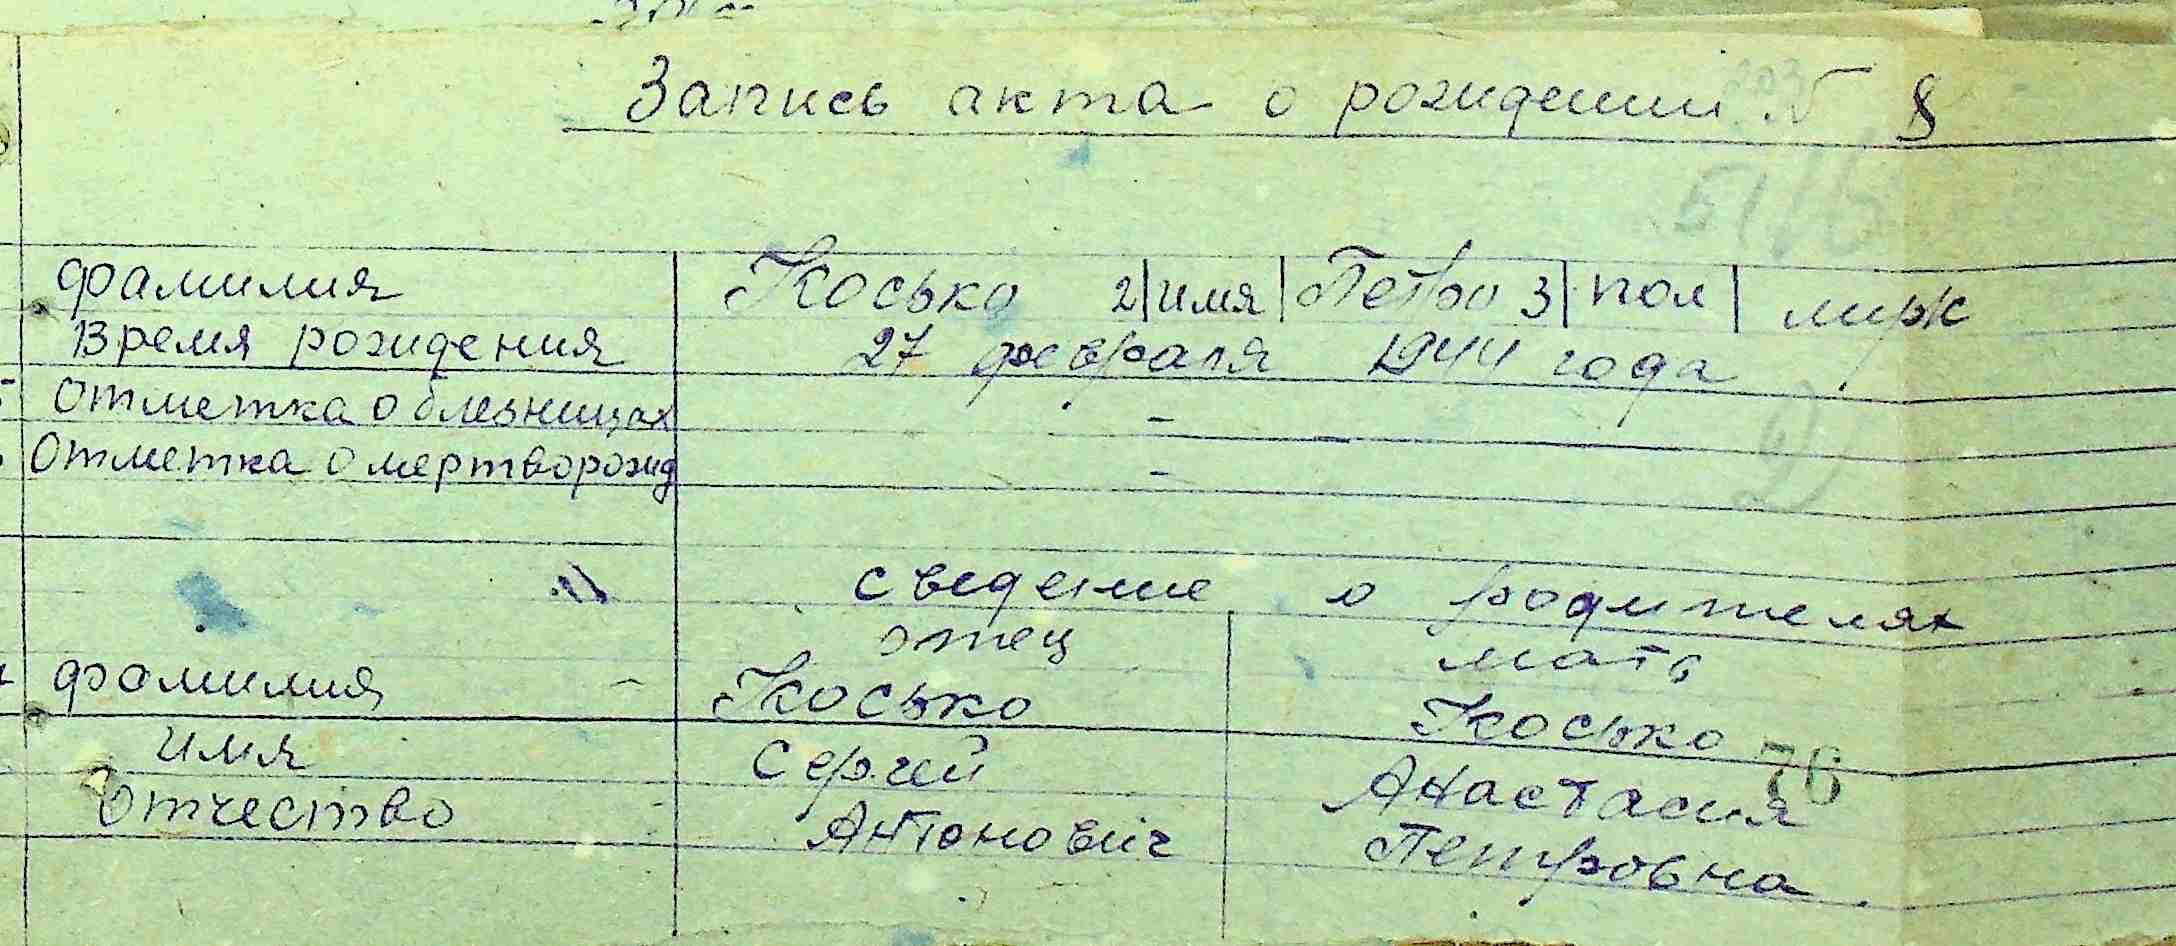 Запись акта о рождении № 8
фамилия Косько 2 имя Петро 3 пол муж
Время рождения 27 февраля 1944 года
Отметка о блезницах -
Отметка о мертворожд -
сведение о родителях
отец мать
фамилия - Косько Косько
76
имя Сергей Анастасия
отчество Антонович Петровна